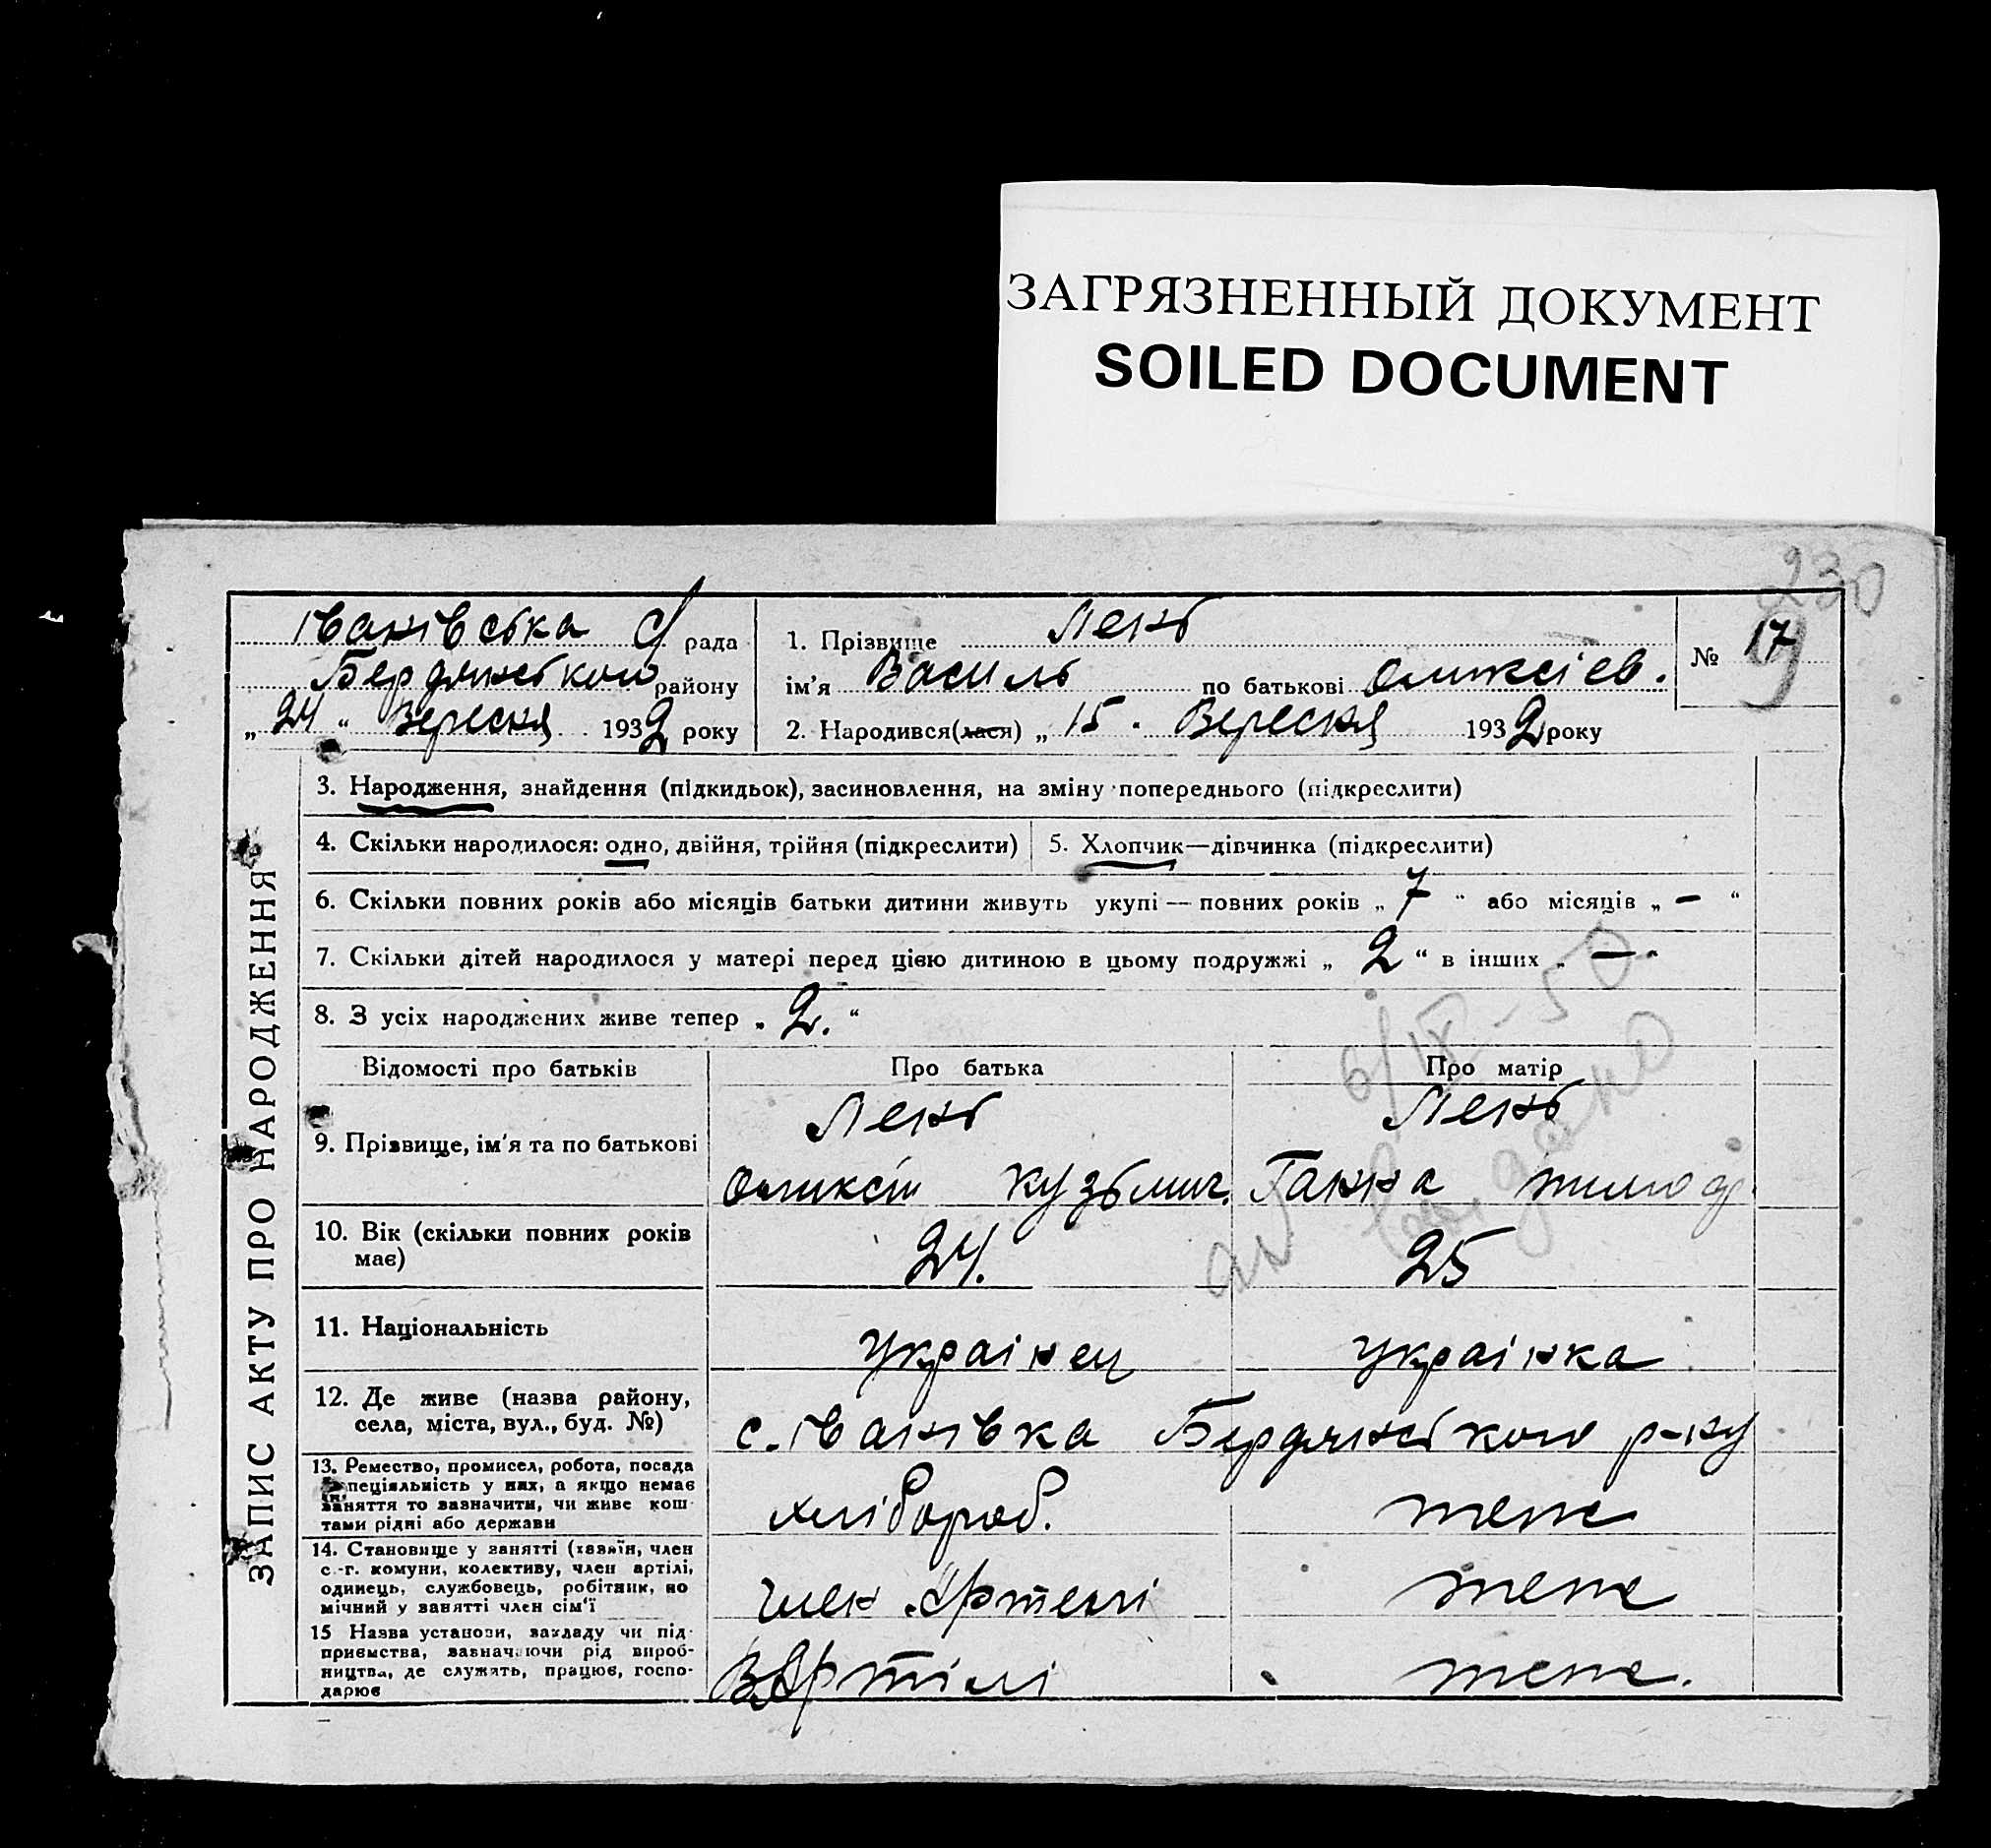 ЗАГРЯЗНЕННЫЙ ДОКУМЕНТ
SOILED DOCUMENT
230
Іванівська с/рада
Бердянського району
„24“ Вересня 1932 року
1. Прізвище Лень
ім'я Василь по батькові Оликсієв.
2. Народився(лася) „15. Вересня 1932 року
№ 17
ЗАПИС АКТУ ПРО НАРОДЖЕННЯ
3. Народження, знайдення (підкидьок), засиновлення, на зміну попереднього (підкреслити)
4. Скільки народилося: одно, двійня, трійня (підкреслити)
5. Хлопчик—дівчинка (підкреслити)
6. Скільки повних років або місяців батьки дитини живуть укупі — повних років „7“ або місяців „–“
7. Скільки дітей народилося у матері перед цією дитиною в цьому подружжі „2“ в інших „—“
8. З усіх народжених живе тепер „2.“
6/IX-50
Відомості про батьків Про батька Про матір
9. Прізвище, ім'я та по батькові
Лень Лень
Оликсій Кузьмич. Ганна
10. Вік (скільки повних років
має)
24. 25
11. Національність
Українец Українка
12. Де живе (назва району,
села, міста, вул., буд. №)
с. Іванівка Бердянського р-ну
13. Ремество, промисел, робота, посада
спеціяльність у них, а якщо немає
заняття то зазначити, чи живе кош-
тами рідні або держави
хлібороб.
14. Становище у занятті (хазяїн, член
с.-г. комуни, колективу, член артілі,
одинець, службовець, робітник, по
мічний у занятті член сім'ї
член Артелі
15 Назва установи, закладу чи під-
приємства, зазначаючи рід вироб-
ництва, де служить, працює, госпо-
дарює
В Артілі